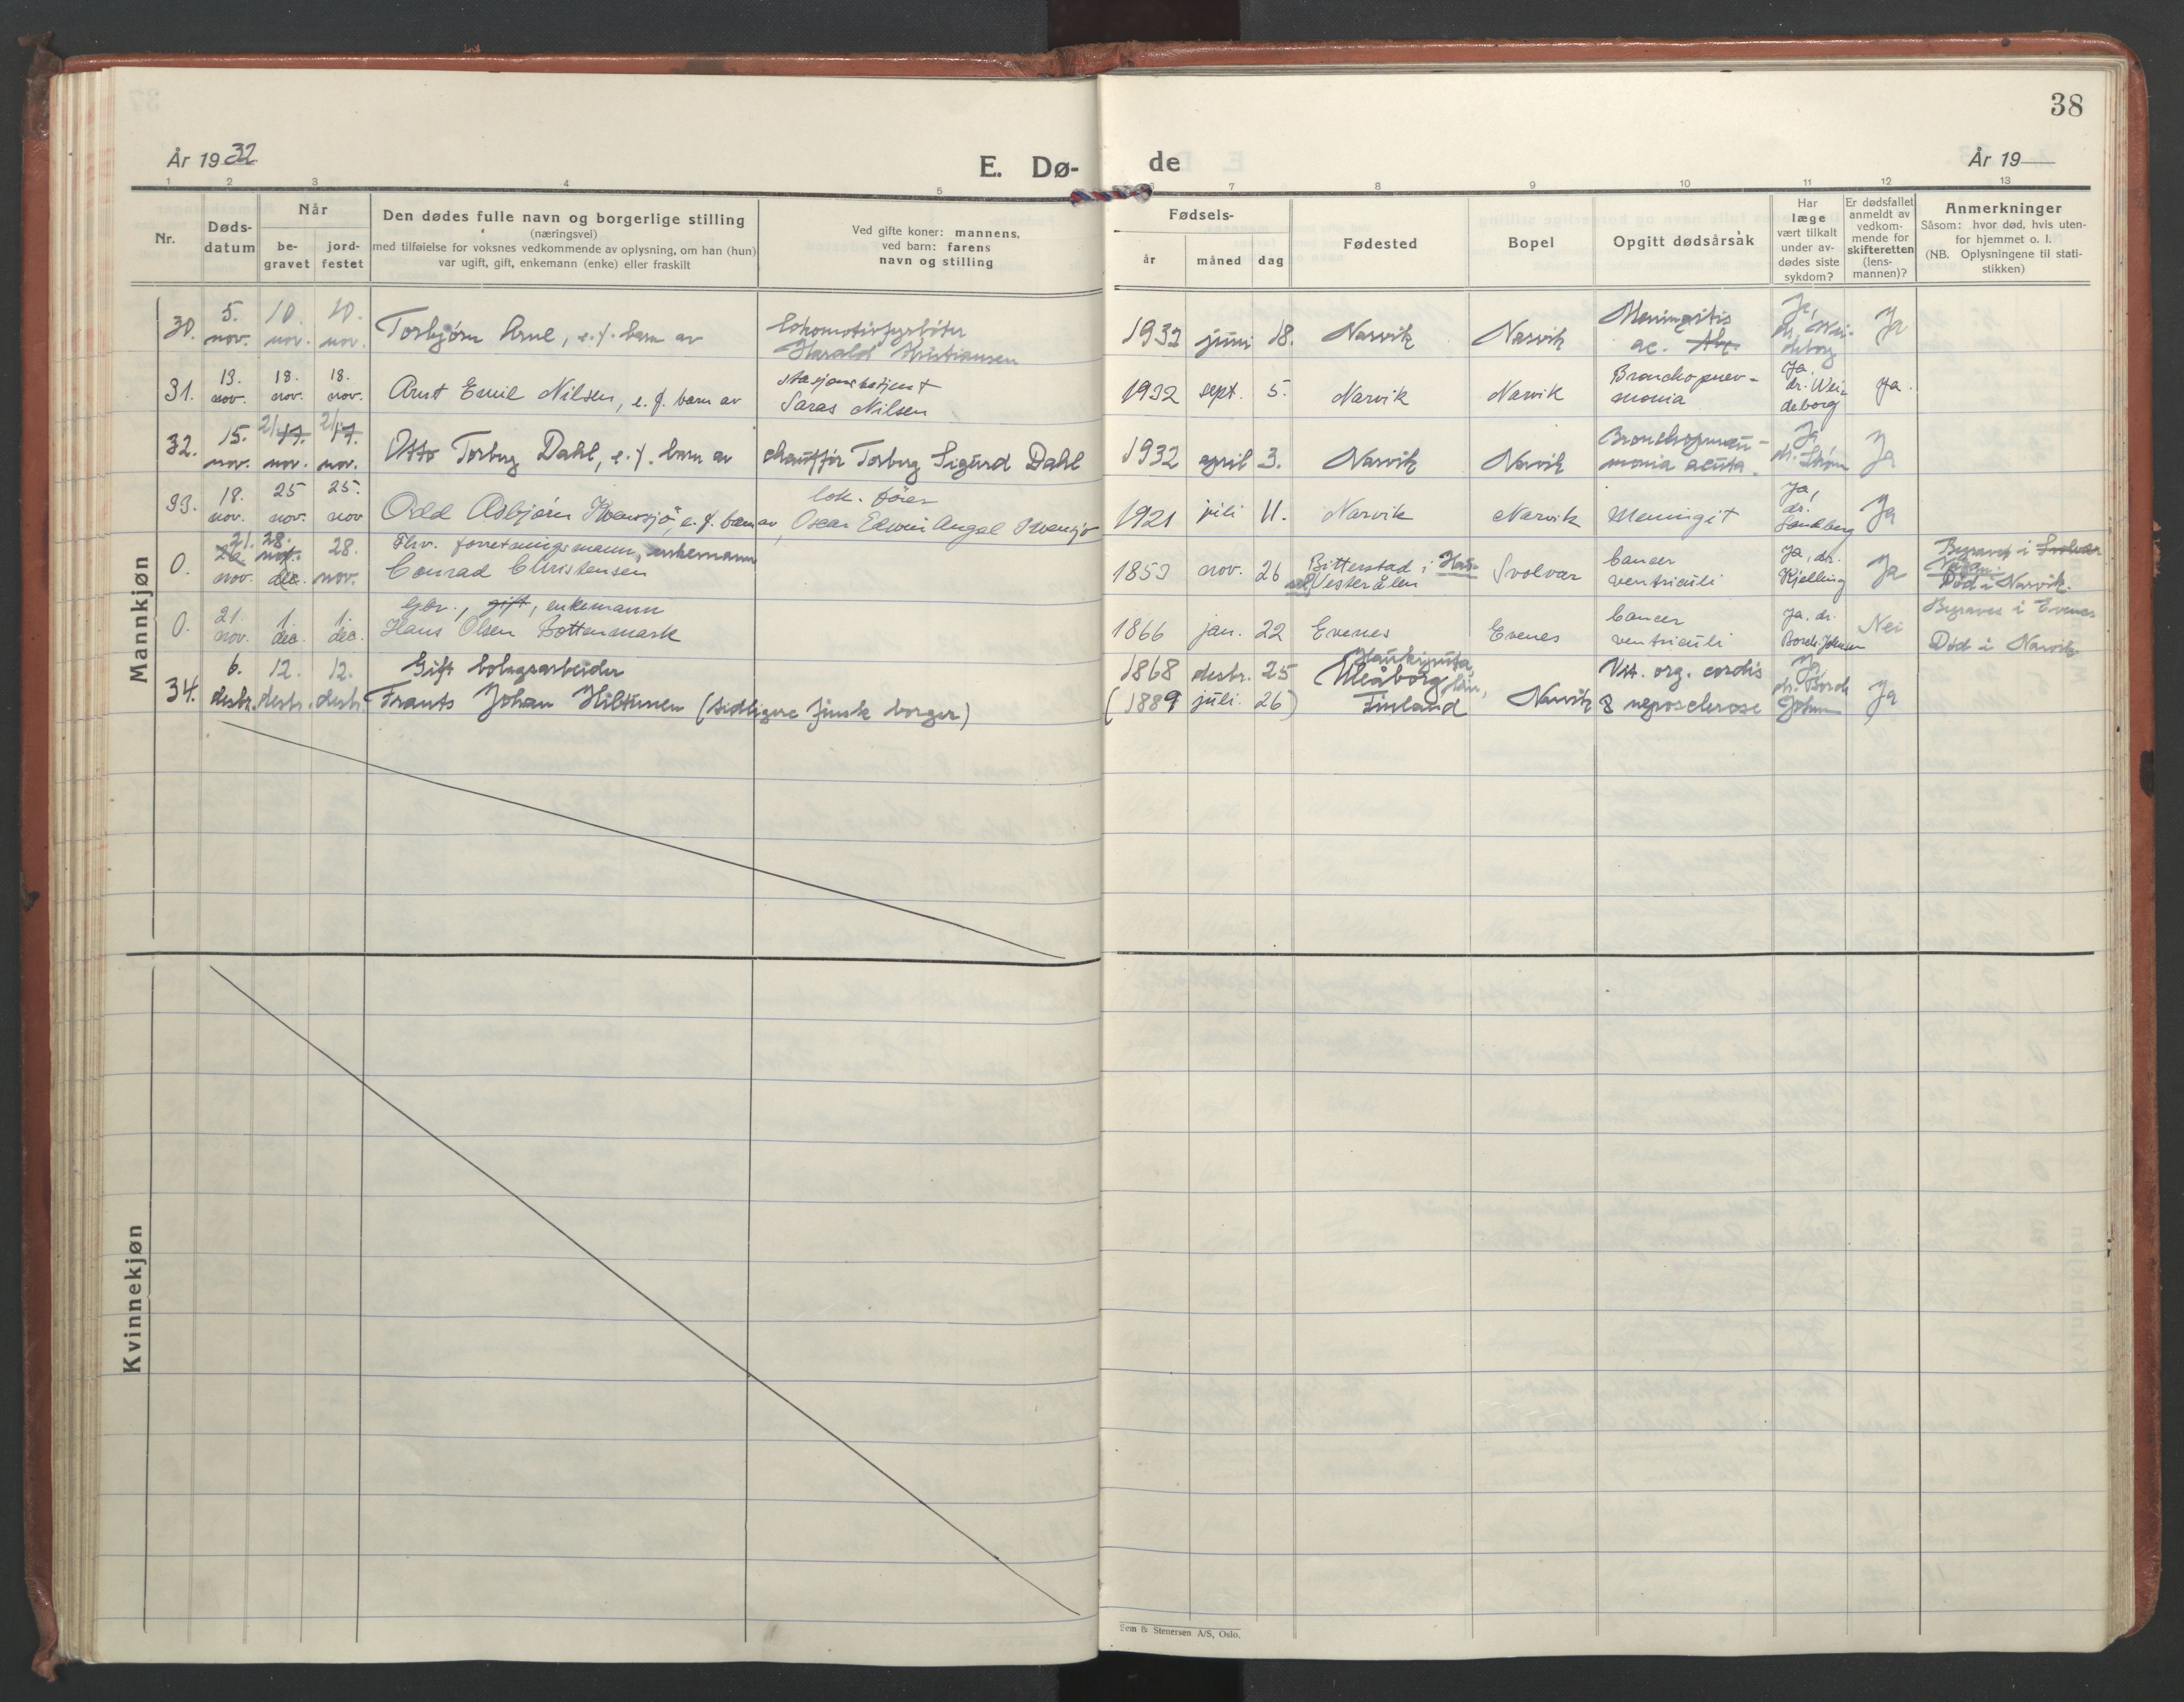 38
År 19 32
E. Dø-
de
År 19
1 2 3 4 5
6 7 8 9 10 11 12 13
Nr.
Døds-
datum
Når
be-
gravet
jord-
festet
Den dødes fulle navn og borgerlige stilling
(næringsvei)
med tilføielse for voksnes vedkommende av oplysning, om han (hun)
var ugift, gift, enkemann (enke) eller fraskilt
Ved gifte koner: mannens,
ved barn: farens
navn og stilling
Fødsels-
år
måned
dag
Fødested
Bopel
Opgitt dødsårsak
Har
læge
vært tilkalt
under av-
dødes siste
sykdom?
Er dødsfallet
anmeldt av
vedkom-
mende for
skifteretten
(lens-
mannen)?
Anmerkninger
Såsom: hvor død, hvis uten-
for hjemmet o. l.
(NB. Oplysningene til stati-
stikken)
Mannkjøn
30. 5. nov. 10. nov. 10. nov. Torbjørn Arne, e. f. barn av lokomotivfyrbøter
Harald Kristiansen
1932 juni 18. Narvik Narvik Meningitis
ac. Ja, dr. Wei-
deborg Ja
31. 13. nov. 18. nov. 18. nov. Arnt Emil Nilsen, e. f. barn av stasjonsbetjent
Saras Nilsen
1932 sept. 5. Narvik Narvik Bronchopnev-
monia Ja, dr. Wei-
deborg Ja.
32. 15. nov. 21/17. nov. 21/17. nov. Otto Torberg Dahl, e. f. barn av chauffør Torberg Sigurd Dahl
1932 april 3. Narvik Narvik Bronchopneu-
monia acuta. Ja dr. Strøm Ja
33. 18. nov. 25 nov. 25. nov Odd Asbjørn Kvensjø, e. f. barn av lok. fører
Oscar Edwin Angel Kvensjø
1921 juli 11. Narvik Narvik Meningit Ja, dr.
Sandberg Ja
0. 21. 26 nov. 28. nov. dec. 28. nov. Fhv. forretningsmann, enkemann
Conrad Christensen
1853 nov. 26 Bitterstad i Had-
sel Vesterålen Svolvær Cancer
ventriculi Ja, dr.
Kjelling Ja Begraves i Svolvær
Død i Narvik.
0. 21. nov. 1. dec. 1. dec. Gbr., gift, enkemann
Hans Olsen Bottenmark
1866 jan. 22 Evenes Evenes Cancer
ventriculi Ja, dr.
Borch-Johnsen Nei Begraves i Evenes
Død i Narvik
34. 6. desbr. 12. desbr. 12. desbr. Gift bolagsarbeider
Frants Johan Hiltunen (tidligere finsk borger)
1868 desbr. 25
(1889 juli. 26)
Haukiputa,
Uleåborg län,
Finland Narvik Vit. org. cordis
& nefrosclerose Ja, dr. Borch
Johns Ja
Kvinnekjøn
Sem & Stenersen A/S, Oslo.